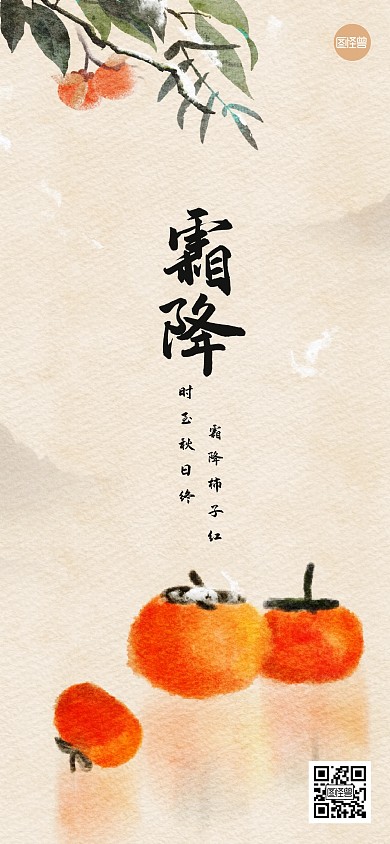 图怪兽
霜降
霜降柿子红
时至秋日终
图怪兽